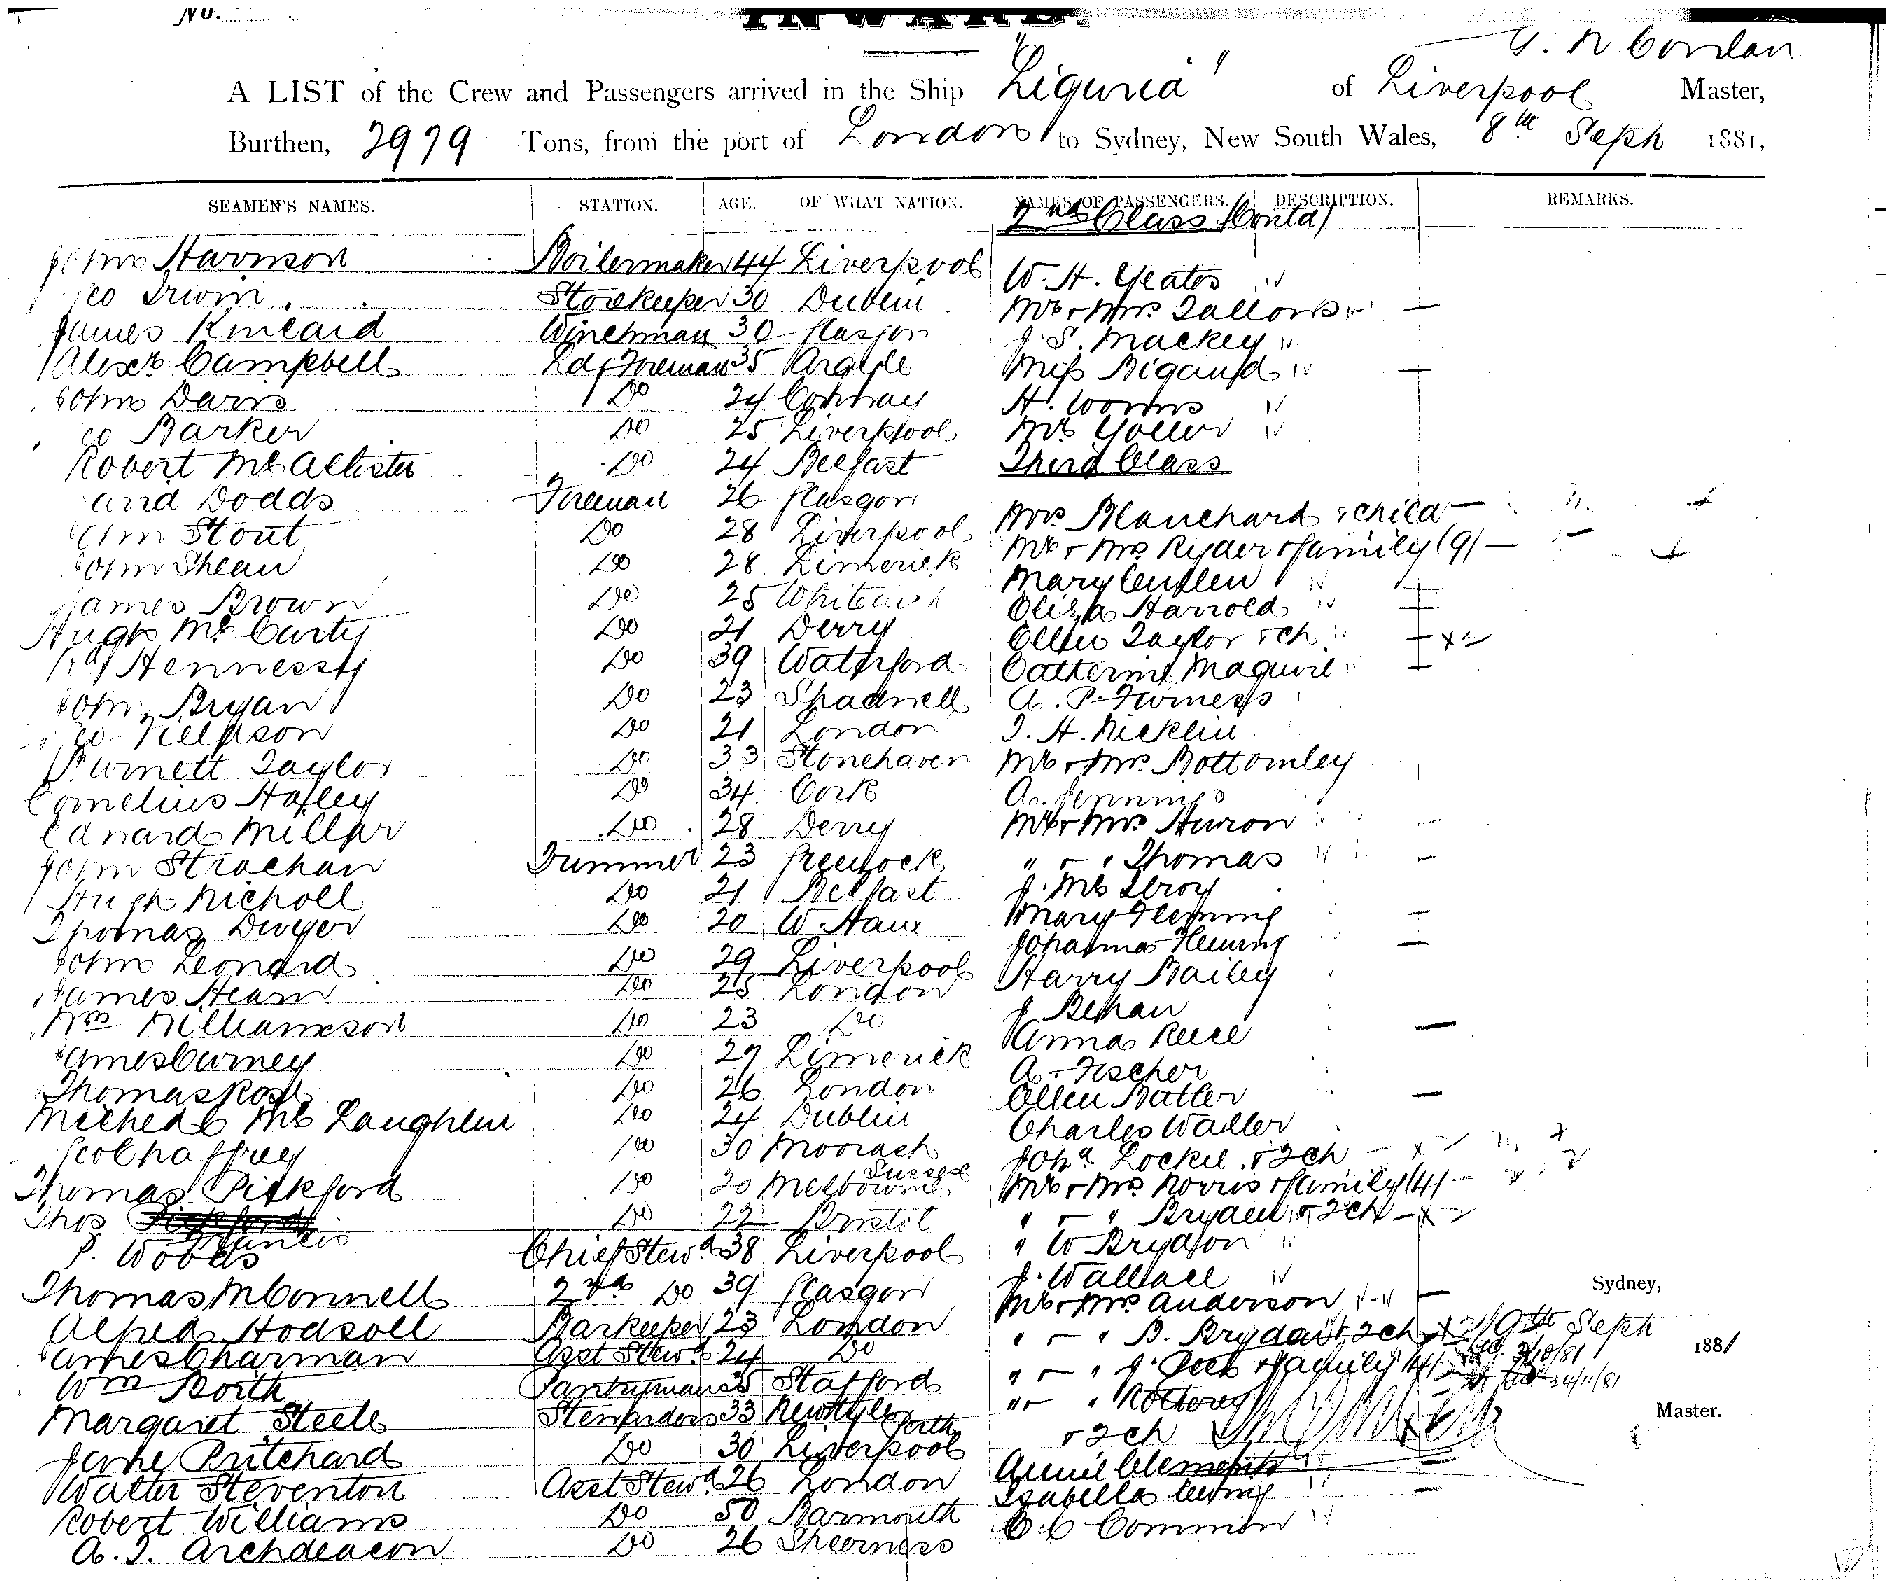 No.
INWARD.
A LIST of the Crew and Passengers arrived in the Ship "Liguria" of Liverpool Master,
Burthen, 2979 Tons, from the port of London to Sydney, New South Wales, 8th Sept 1881,
SEAMEN'S NAMES. STATION. AGE. OF WHAT NATION. NAMES OF PASSENGERS. DESCRIPTION. REMARKS.
2nd Class (Contd)
John Harrison Boilermaker 44 Liverpool W. H. Yeates "
Geo Irwin Storekeeper 30 Dublin Mr & Mrs
James Kincaid Winchman 30 Glasgow J. S. Mackey "
Alexr Campbell Ldg Fireman 35 Argyle Miss Rigaud "
John Davis Do 24 Conway H. Worms "
Geo Barker Do 25 Liverpool Mr
Robert McAllister Do 24 Belfast Third Class
Dodds Fireman 26 Glasgow Mrs Blanchard & child
Stout Do 28 Liverpool Mr & Mrs Ryder & family (9)
John Shean Do 28 Limerick Mary
James Brown Do 25 Eliza Harrold "
Hugh McCarty Do 21 Derry Ellen Taylor & ch "
Hennessy Do 39 Waterford Catherine Maguire "
John Bryan Do 23 Shadwell A. P. Furness
Geo Do 21 London T. H. Nicklin
Burnett Taylor Do 33 Stonehaven Mr & Mrs Bottomley
Cornelius Do 34 Cork A. Jennings
Edward Millar Do 28 Derry Mr & Mrs Huron
John Strachan Trimmer 23 Greenock " & " Thomas "
Hugh Nicholl Do 21 Belfast J. McIlroy
Thomas Dwyer Do 20 Mary Fleming
John Leonard Do 29 Liverpool Johanna Fleming
James Hearn Do 25 London Harry Bailey
Wm Williamson Do 23 Do J Behan
James Curney Do 27 Limerick Anna Reece
Thomas Rose Do 26 London A. Fischer
Micheal McLaughlin Do 24 Dublin Ellen Butler
Geo Chaffrey Do 30 Charles Waller
Sussex
Thomas Pickford Do 20 Melbourne Mr & Mrs Norris & family (4)
Thos Francis Do 22 Bristol " & " Bryden & 2 ch
P. Woods Chief Stewd 38 Liverpool " W Brydson "
Thomas McConnell 2nd Do 39 Glasgow J. Wallace "
Sydney,
Alfred Hodsoll Barkeeper 23 London Mr & Mrs Anderson
James Charman Asst Stewd 24 Do " & " B. Brydan & 2 ch 9th Sept 1881
Wm North Pantryman 25 Stafford " & " J. & family (4)
Margaret Steele Stewardess 33 Newtyle Perth " & "
& 2 ch Master.
Jane Pritchard Do 30 Liverpool
Walter Steventon Asst Stewd 26 London Annie Clements "
Robert Williams Do 50 Barmouth Isabella "
A. T. Archdeacon Do 26 Sheerness C C Common "